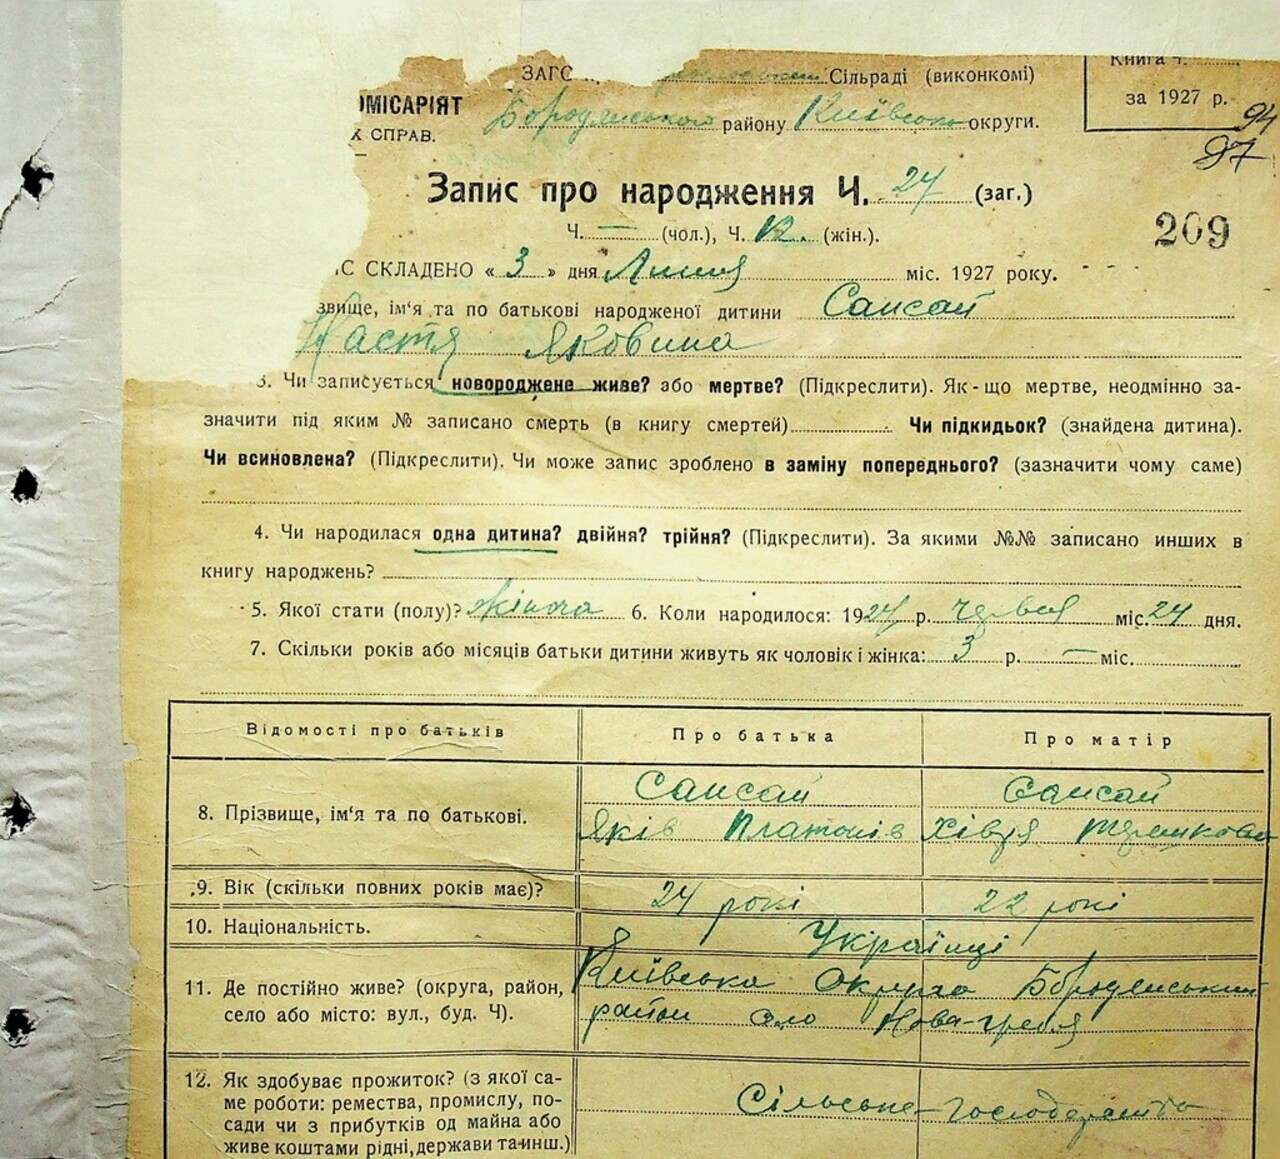 ЗАГС Сільраді (виконкомі)
Книга Ч.
ОМІСАРІЯТ
за 1927 р.
94
Бородянського району Київсько округи.
Х СПРАВ.
97
Запис про народження Ч. 24 (заг.)
Ч. — (чол.), Ч. 12. (жін.).
209
ИС СКЛАДЕНО « 3 » дня Липня міс. 1927 року.
звище, ім‘я та по батькові народженої дитини Сансай
Настя Яковина
3. Чи записується новороджене живе? або мертве? (Підкреслити). Як-що мертве, неодмінно за-
значити під яким № записано смерть (в книгу смертей) Чи підкидьок? (знайдена дитина).
Чи всиновлена? (Підкреслити). Чи може запис зроблено в заміну попереднього? (зазначити чому саме)
4. Чи народилася одна дитина? двійня? трійня? (Підкреслити). За якими №№ записано инших в
книгу народжень?
5. Якої стати (полу)? жіноча 6. Коли народилося: 1927 р. червня міс. 24 дня.
7. Скільки років або місяців батьки дитини живуть як чоловік і жінка: 3 р. — міс.
Відомості про батьків Про батька Про матір
Сансай Сансай
8. Прізвище, ім‘я та по батькові.
Яків Платонів Хівря
9. Вік (скільки повних років має)? 24 рокі 22 рокі
10. Національність. Українці
11. Де постійно живе? (округа, район, село або місто: вул., буд. Ч).
Київська Округа Бородянський
район село Нова-гребля
12. Як здобуває прожиток? (з якої са-
ме роботи: ремества, промислу, по-
сади чи з прибутків од майна або
живе коштами рідні, держави та инш.)
Сільське-господарство